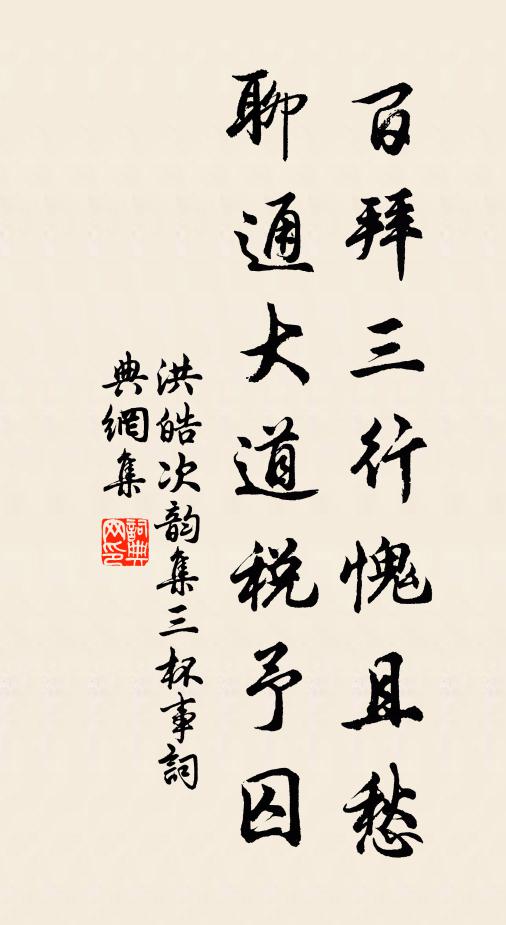 百拜三行愧且愁
聊通大道税予囚
洪皓次韵集三杯事詞
典網集
詞典
网印